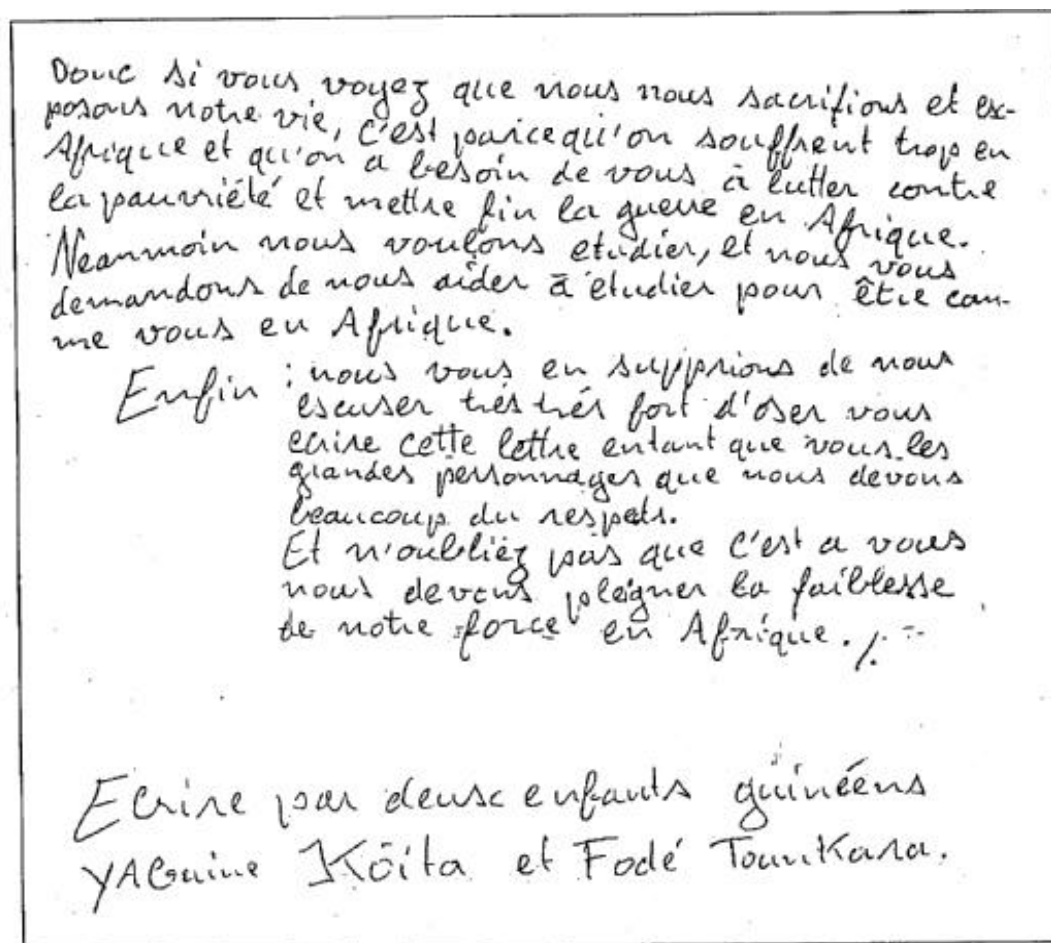 Donc si vous voyez que nous nous sacrifions et ex-
posons notre vie, c'est parcequ'on souffrent trop en
Afrique et qu'on a besoin de vous à lutter contre
la pauvriété et mettre fin la guerre en Afrique.
Neanmoin nous voulons etudier, et nous vous
demandons de nous aider à étudier pour être com-
me vous en Afrique.
Enfin : nous vous en supprions de nous
escuser très très fort d'oser vous
ecrire cette lettre entant que vous les
grandes personnages que nous devons
beaucoup du respets.
Et n'oubliez pas que c'est a vous
nous devons pleigner la faiblesse
de notre force en Afrique. /.
Ecrire par deux enfants guinéens
YAGuine Köita et Fodé TounKara.